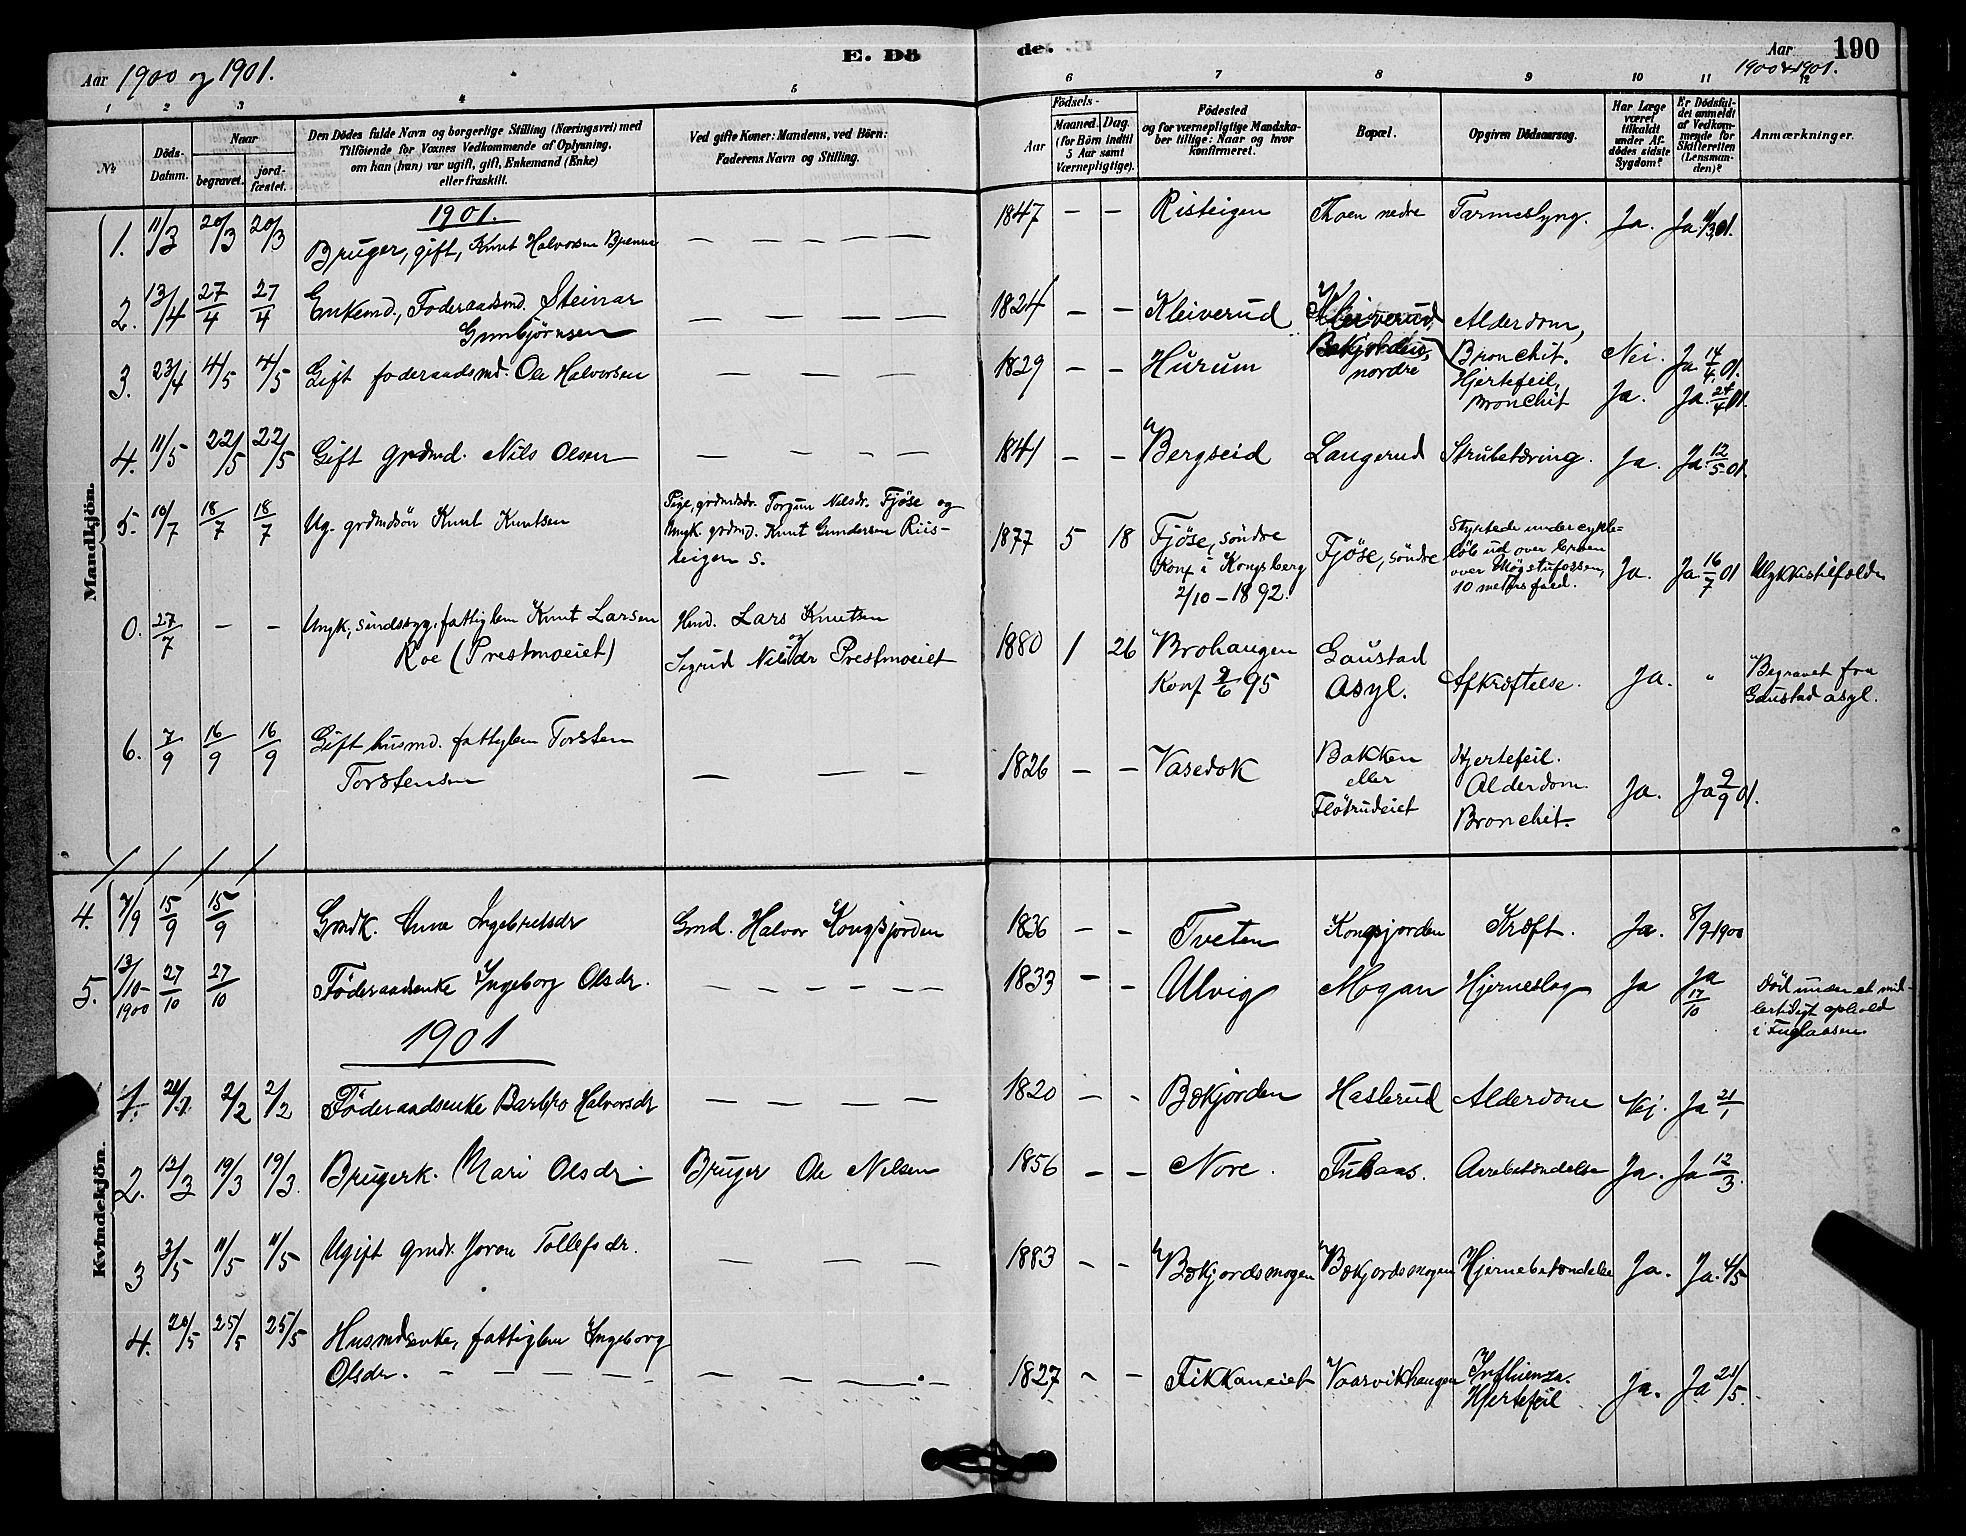 E. Dö de. 190
Aar 1900 og 1901. Aar 1900 & 1901.
1 2 3 4 5 6 7 8 9 10 11 12
No
Döds-Datum.
Naar
begravet.
jord-fæstet.
Den Dödes fulde Navn og borgerlige Stilling (Næringsvei) med
Tilföiende for Voxnes Vedkommende af Oplysning,
om han (hun) var ugift, gift, Enkemand (Enke)
eller fraskilt.
Ved gifte Koner: Mandens, ved Börn:
Faderens Navn og Stilling.
Födsels-
Aar
Maaned. Dag.
(for Börn indtil
5 Aar samt
Værnepligtige).
Födested
og for værnepligtige Mandska-
ber tillige: Naar og hvor
konfirmeret.
Bopæl.
Opgiven Dödsaarsag.
Har Læge
været
tilkaldt
under Af-
dödes sidste
Sygdom?
Er Dödsfal-
det anmeldt
af Vedkom-
mende for
Skifteretten
(Lensman-
den)?
Anmærkninger.
Mandkjön.
1901.
1. 11/3 20/3 20/3 Bruger, gift, Knut Halvorsen Brenna — — — — — 1847 — — Risteigen Thoen nedre Tarmeslyng. Ja. Ja 11/3 01.
2. 13/4 27/4 27/4 Enkemd., Foderaadsmd. Steinar
Gunbjörnsen — — — — 1824 — — Kleiverud Kleiverud Alderdom,
Bronchit. Nei. Ja 14/4 01.
3. 23/4 4/5 4/5 Gift foderaadsmd. Ole Halvorsen — — — 1829 — — Hurum Bekjorden,
nordre Hjertefeil,
Bronchit Ja. Ja. 24/4 01.
4. 11/5 22/5 22/5 Gift grdmd. Nils Olsen — — — — 1841 — — Bergseid Langerud Strubetæring. Ja. Ja. 12/5 01.
5. 10/7 18/7 18/7 Ug. grdmdsön Knut Knutsen
Pige, grdmdsdr. Torgun Nilsdr. Fjöse og
Ungk. grdmd. Knut Gundersen Riis-
teigen s.
1877 5 18 Fjöse, söndre
Konf i Kongsberg
2/10 - 1892.
Fjöse, söndre
Styrtede under cykle-
löb ud over broen
over Mögstufossen,
10 meters fald.
Ja. Ja. 16/7 01 Ulykkestilfælde
0. 27/7 - - Ungk, sindssyg, fattiglem Knut Larsen
Roe (Prestmoeiet)
Husmd. Lars Knutsen
Sigrid Nilsdr Prestmoeiet
1880 1 26 Brohaugen
Konf 9/6 95
Gaustad
Asyl.
Afkræftelse. Ja. " Begravet fra
Gaustad asyl.
6. 7/9 16/9 16/9 Gift husmd. fattiglem Torsten
Torstensen — — — 1826 — — Vasedok
Bakken
eller
Flötrudeiet
Hjertefeil.
Alderdom.
Bronchit.
Ja. Ja 9/9 01.
Kvindekjön.
4. 7/9 15/9 15/9 Gmdk. Anne Ingebretsdr Gmd. Halvor Kongsjorden 1836 — — Tveten Kongsjorden Kræft. Ja. 8/9 1900
5. 13/10 1900 27/10 27/10 Föderaadsenke Ingeborg Olsdr. — — — — — — 1833 — — Ulvig Mogan Hjerneslag Ja Ja
17/10
Död under et mid-
lertidigt ophold
i Fuglaasen
1901
1. 21/1 2/2 2/2 Föderaadsenke Barbro Halvorsdr — — — — — 1820 — — Bekjorden Haslerud Alderdom Nej. Ja 21/1
2. 12/3 19/3 19/3. Brugerk. Mari Olsdr. Bruger Ole Nilsen 1856 — — Nore. Tulsaas. Aarebetændelse Ja. Ja 12/3.
3 3/5 11/5 11/5 Ugift gmdr. Joran Tollefsdr. — — — — 1883 — — Bekjordsmogen Bekjordsmogen Hjernebetændelse Ja. Ja. 4/5
4. 20/5 25/5 25/5 Husmdsenke, fattiglem Ingeborg
Olsdr. — — — — — — — — 1827 — — Fikkaneiet Vaarvikhaugen Influenza.
Hjertefeil Ja. Ja 21/5.